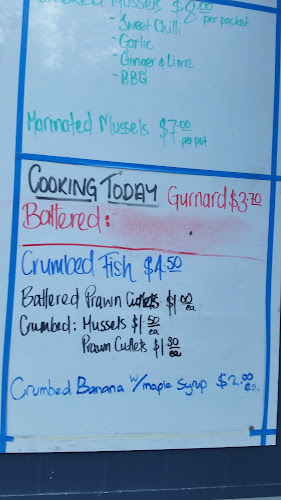 Mussels $8.00
per packet
- Sweet Chilli
- Garlic
- Ginger & Lime
- BBQ
Marinated Mussels $7.00
per pot
COOKING TODAY
Gurnard $3.70
Battered:
Crumbed Fish $4.50
Battered Prawn Cutlets $1.00 ea
Crumbed: Mussels $1.50 ea
Prawn Cutlets $1.30 ea
Crumbed Banana w/maple syrup $2.00 ea.